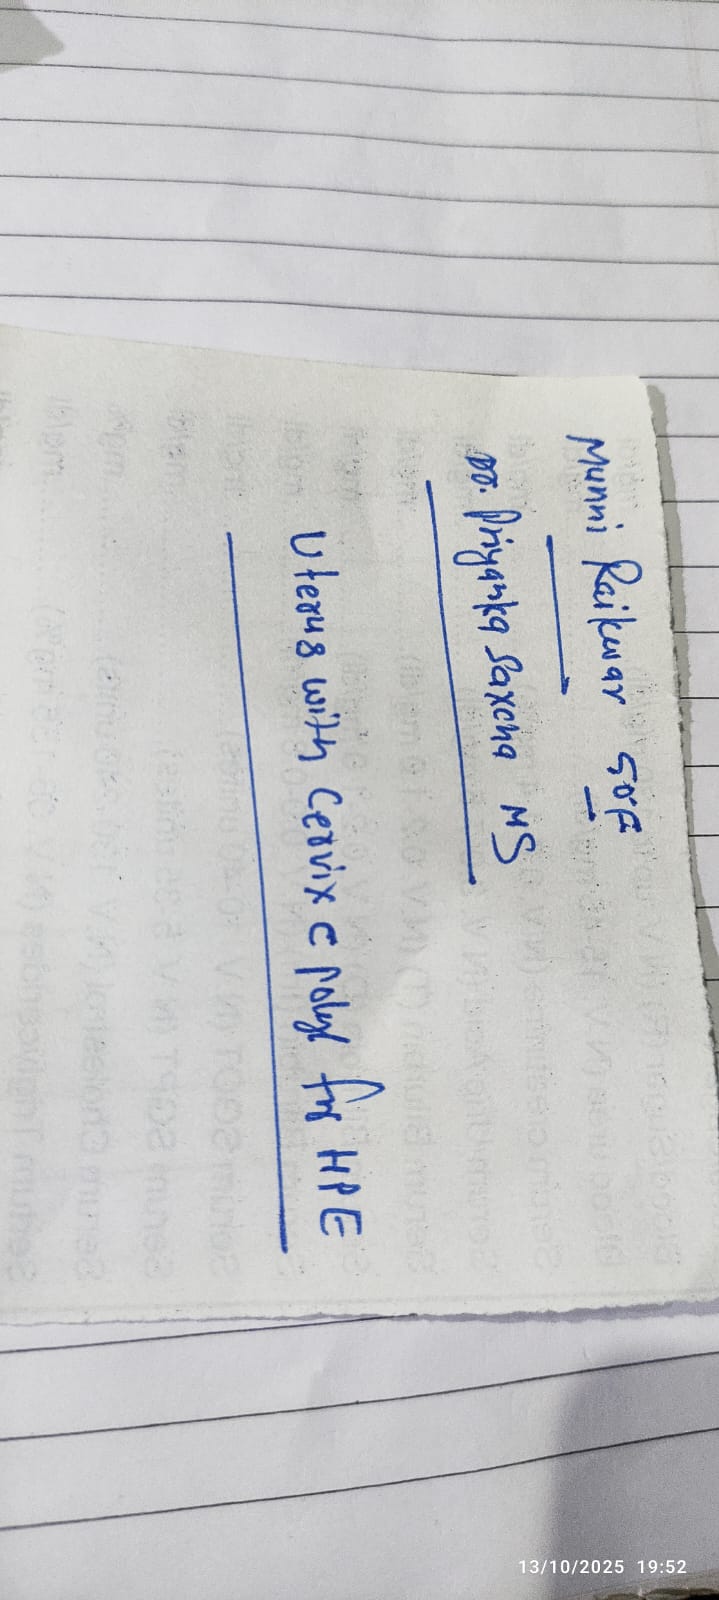 Munni Raikwar 50F
Dr. Priyanka Saxena MS
Uterus with Cervix c Polyp for HPE
13/10/2025 19:52